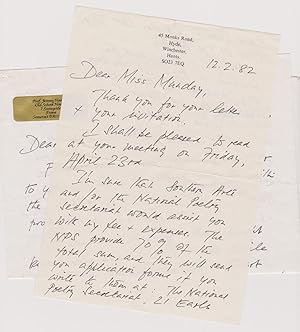 45 Monks Road,
Hyde,
Winchester,
Hants.
SO23 7EQ
12.2.82
Dear Miss Munday,
Thank you for your letter
+ your invitation.
I shall be pleased to read
at your meeting on Friday,
April 23rd.
I'm sure that Southern Arts
and/or the National Poetry
Secretariat would assist you
with my fee + expenses. The
NPS provide 70% of the
total sum, and they will send
you application forms if you
write to them at: The National
Poetry Secretariat, 21 Earls
Dear
to y
the